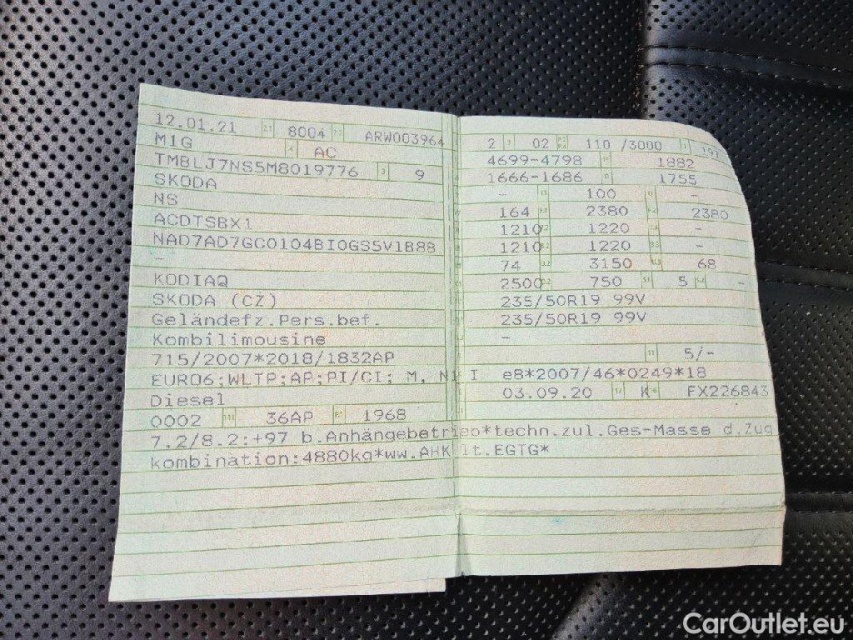 12.01.21 8004 ARW003964
M1G AC
TMBLJ7NS5M8019776 9
SKODA
NS
ACDTSBX1
NAD7AD7GC0104BIOGS5V1B8B
–
KODIAQ
SKODA (CZ)
Geländefz.Pers.bef.
Kombilimousine
715/2007*2018/1832AP
EURO6;WLTP;AP;PI/CI; M, N1 I
Diesel
0002 36AP 1968
7.2/8.2:+97 b.Anhängebetrieb*techn.zul.Ges-Masse d.Zug
kombination:4880kg*ww.AHK lt.EGTG*
2 02 110 /3000
4699-4798 1882
1666-1686 1755
– 100 –
164 2380 2380
1210 1220 –
1210 1220 –
74 3150 68
2500 750 5 –
235/50R19 99V
235/50R19 99V
–
5/–
e8*2007/46*0249*18
03.09.20 K FX226843
CarOutlet.eu